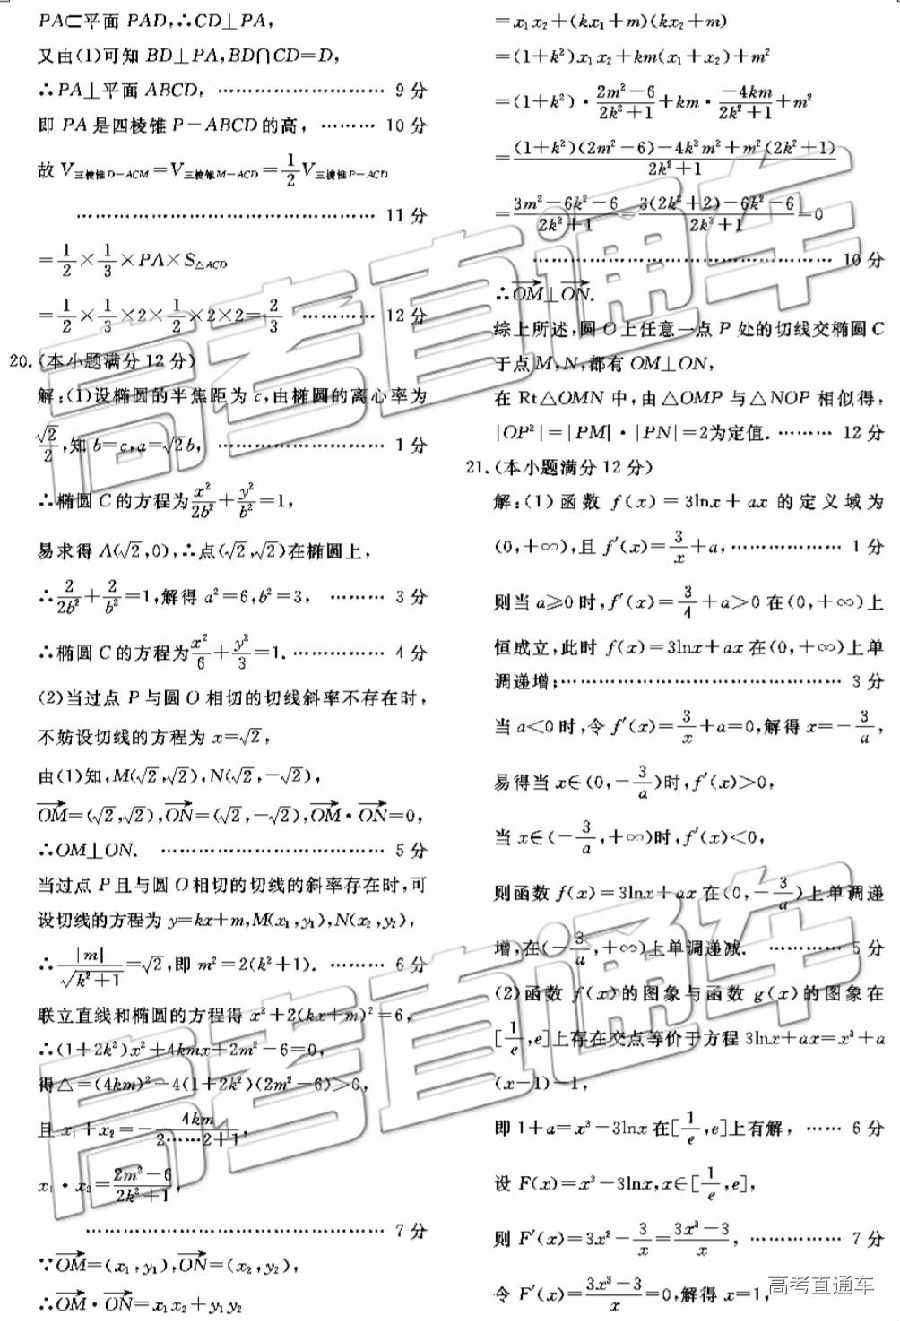 PA⊂平面 PAD,∴CD⊥PA,
又由(1)可知 BD⊥PA,BD∩CD=D,
∴PA⊥平面 ABCD, ………………… 9 分
即 PA 是四棱锥 P-ABCD 的高, ……… 10 分
故 V三棱锥D-ACM=V三棱锥M-ACD=1/2 V三棱锥P-ACD
………………………………… 11 分
=1/2×1/3×PA×S△ACD
=1/2×1/3×2×1/2×2×2=2/3 ………… 12 分
20.(本小题满分 12 分)
解:(1)设椭圆的半焦距为 c,由椭圆的离心率为
√2/2,知 b=c,a=√2b, ………………… 1 分
∴椭圆 C 的方程为 x²/2b²+y²/b²=1,
易求得 A(√2,0),∴点(√2,√2)在椭圆上,
∴2/2b²+2/b²=1,解得 a²=6,b²=3, ……… 3 分
∴椭圆 C 的方程为 x²/6+y²/3=1. …………… 4 分
(2)当过点 P 与圆 O 相切的切线斜率不存在时,
不妨设切线的方程为 x=√2,
由(1)知,M(√2,√2),N(√2,-√2),
OM→=(√2,√2),ON→=(√2,-√2),OM→·ON→=0,
∴OM⊥ON. ………………………… 5 分
当过点 P 且与圆 O 相切的切线的斜率存在时,可
设切线的方程为 y=kx+m,M(x₁,y₁),N(x₂,y₂),
∴|m|/√(k²+1)=√2,即 m²=2(k²+1). ……… 6 分
联立直线和椭圆的方程得 x²+2(kx+m)²=6,
∴(1+2k²)x²+4kmx+2m²-6=0,
得△=(4km)²-4(1+2k²)(2m²-6)>0,
且 x₁+x₂=-4km/2……2+1,
x₁·x₂=(2m²-6)/(2k²+1),
………………………………… 7 分
∵OM→=(x₁,y₁),ON→=(x₂,y₂),
∴OM→·ON→=x₁x₂+y₁y₂
=x₁x₂+(kx₁+m)(kx₂+m)
=(1+k²)x₁x₂+km(x₁+x₂)+m²
=(1+k²)·(2m²-6)/(2k²+1)+km·(-4km)/(2k²+1)+m²
=((1+k²)(2m²-6)-4k²m²+m²(2k²+1))/(2k²+1)
=(3m²-6k²-6)/(2k²+1)=(3(2k²+2)-6k²-6)/(2k²+1)=0
………………………………… 10 分
∴OM→⊥ON→.
综上所述,圆 O 上任意一点 P 处的切线交椭圆 C
于点 M,N,都有 OM⊥ON,
在 Rt△OMN 中,由△OMP 与△NOP 相似得,
|OP²|=|PM|·|PN|=2为定值. ……… 12 分
21.(本小题满分 12 分)
解:(1)函数 f(x)=3lnx+ax 的定义域为
(0,+∞),且 f′(x)=3/x+a,…………… 1 分
则当 a≥0 时,f′(x)=3/4+a>0 在(0,+∞)上
恒成立,此时 f(x)=3lnx+ax 在(0,+∞)上单
调递增;………………………………… 3 分
当 a<0 时,令 f′(x)=3/x+a=0,解得 x=-3/a,
易得当 x∈(0,-3/a)时,f′(x)>0,
当 x∈(-3/a,+∞)时,f′(x)<0,
则函数 f(x)=3lnx+ax 在(0,-3/a)上单调递
增,在(-3/a,+∞)上单调递减. ………… 5 分
(2)函数 f(x)的图象与函数 g(x)的图象在
[1/e,e]上存在交点等价于方程 3lnx+ax=x³+a
(x-1)-1,
即 1+a=x³-3lnx 在[1/e,e]上有解, …… 6 分
设 F(x)=x³-3lnx,x∈[1/e,e],
则 F′(x)=3x²-3/x=(3x³-3)/x, ………… 7 分
令 F′(x)=(3x³-3)/x=0,解得 x=1,
高考直通车
高考直通车
高考直通车